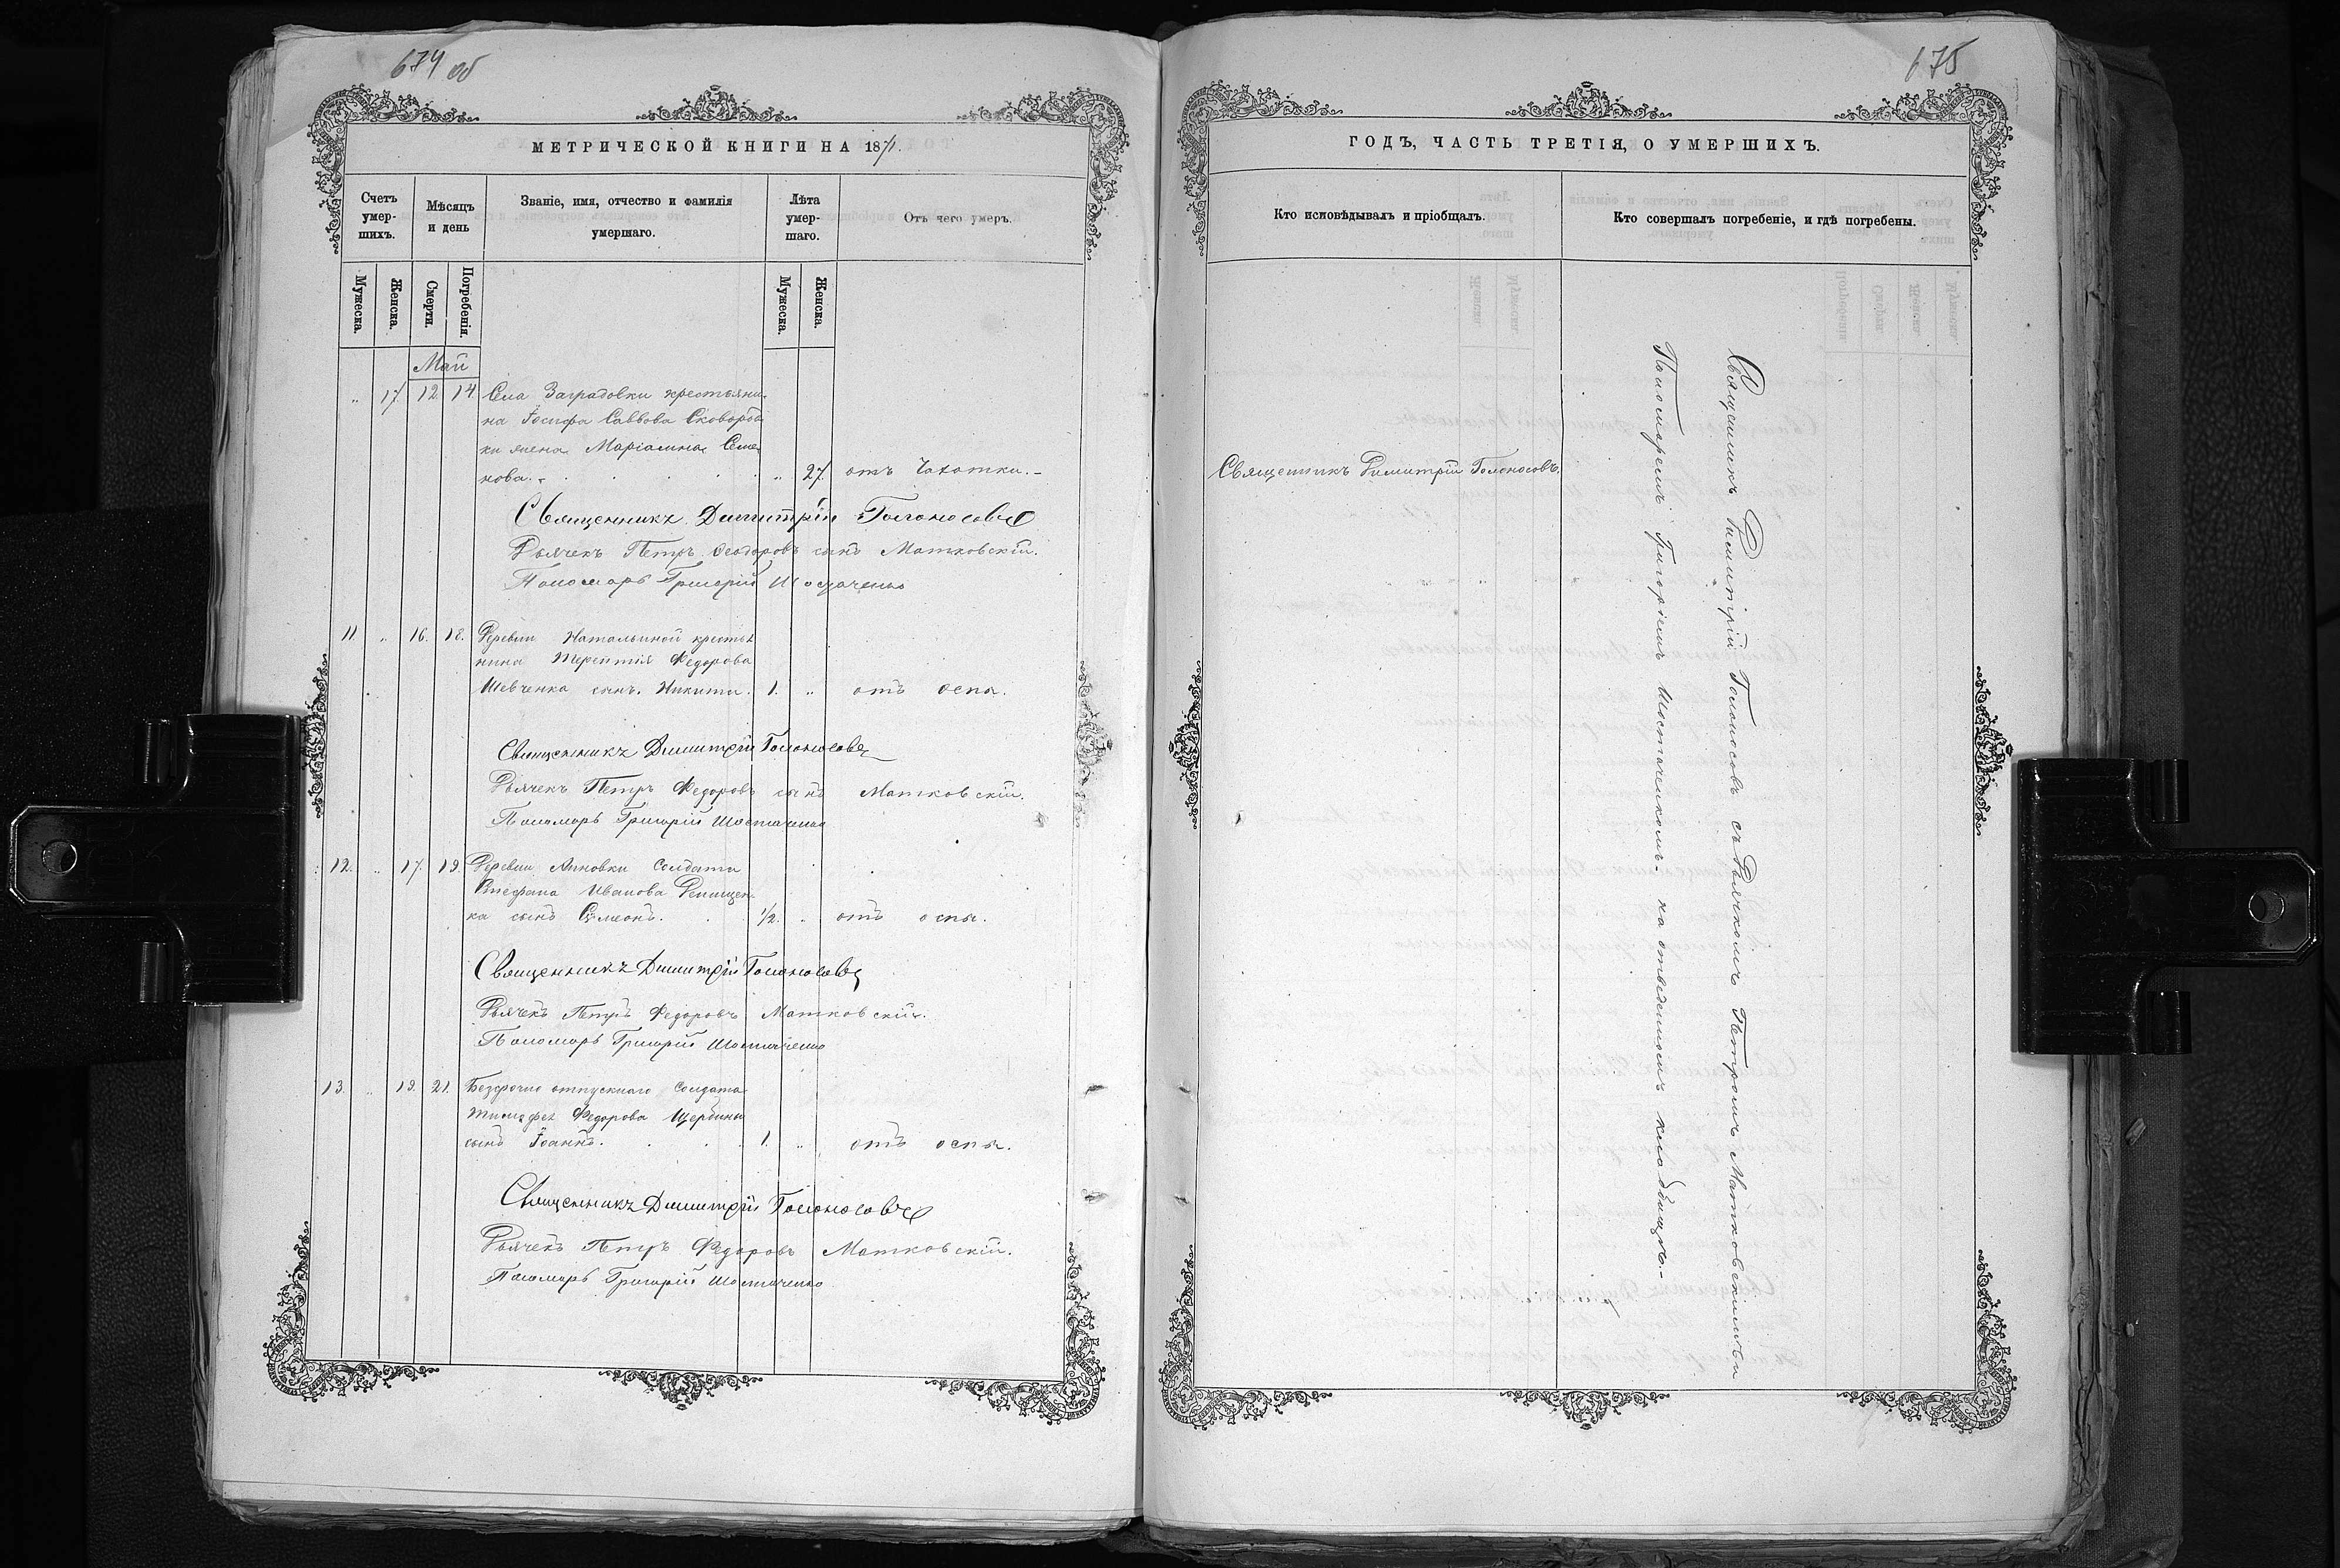 674 об
МЕТРИЧЕСКОЙ КНИГИ НА 1871.
Счетъ умер-шихъ.
Мѣсяцъ и день
Званіе, имя, отчество и фамилія умершаго.
Лѣта умер-шаго.
Отъ чего умеръ.
Мужеска.
Женска.
Смерти.
Погребенія.
Мужеска.
Женска.
Май
„ 17 12 14 Села Заградовки крестьяни-
на Іосифа Саввова Сковород
ки жена Маріамна Семе
нова. „ 27 отъ Чахотки.-
Священникъ Димитрій Голоносовъ
Дьячекъ Петръ Феодоровъ сынъ Матковскій.
Пономарь Григорій
11 „ 16. 18. Деревни Натальиной крестья
нина Терентія Федорова
Шевченка сынъ Никита. 1. „ отъ оспы.
Священникъ Димитрій Голоносовъ
Дьячекъ Петръ Федоровъ сынъ Матковскій.
Пономарь Григорій Шостаченко
12. „ 17. 19. Деревни Анновки Солдата
Стефана Иванова
ка сынъ Симеонъ. 1/2. „ отъ оспы.
Священникъ Димитрій Голоносовъ
Дьячекъ Петръ Федоровъ Матковскій.
Пономарь Григорій Шостаченко
13. „ 19. 21. Безсрочно отпускнаго Солдата
Тимофея Федорова Щербины
сынъ Іоаннъ. 1. „ отъ оспы.
Священникъ Димитрій Голоносовъ
Дьячекъ Петръ Федоровъ Матковскій.
Пономарь Григорій Шостаченко
675
ГОДЪ, ЧАСТЬ ТРЕТІЯ, О УМЕРШИХЪ.
Кто исповѣдывалъ и пріобщалъ.
Кто совершалъ погребеніе, и гдѣ погребены.
Священникъ Димитрій Голоносовъ.
Священникъ Димитрій Голоносовъ съ Дьячкомъ Петромъ Матковскимъ и
Пономаремъ Григоріемъ Шостаченкомъ на отведенномъ кладбищѣ.-